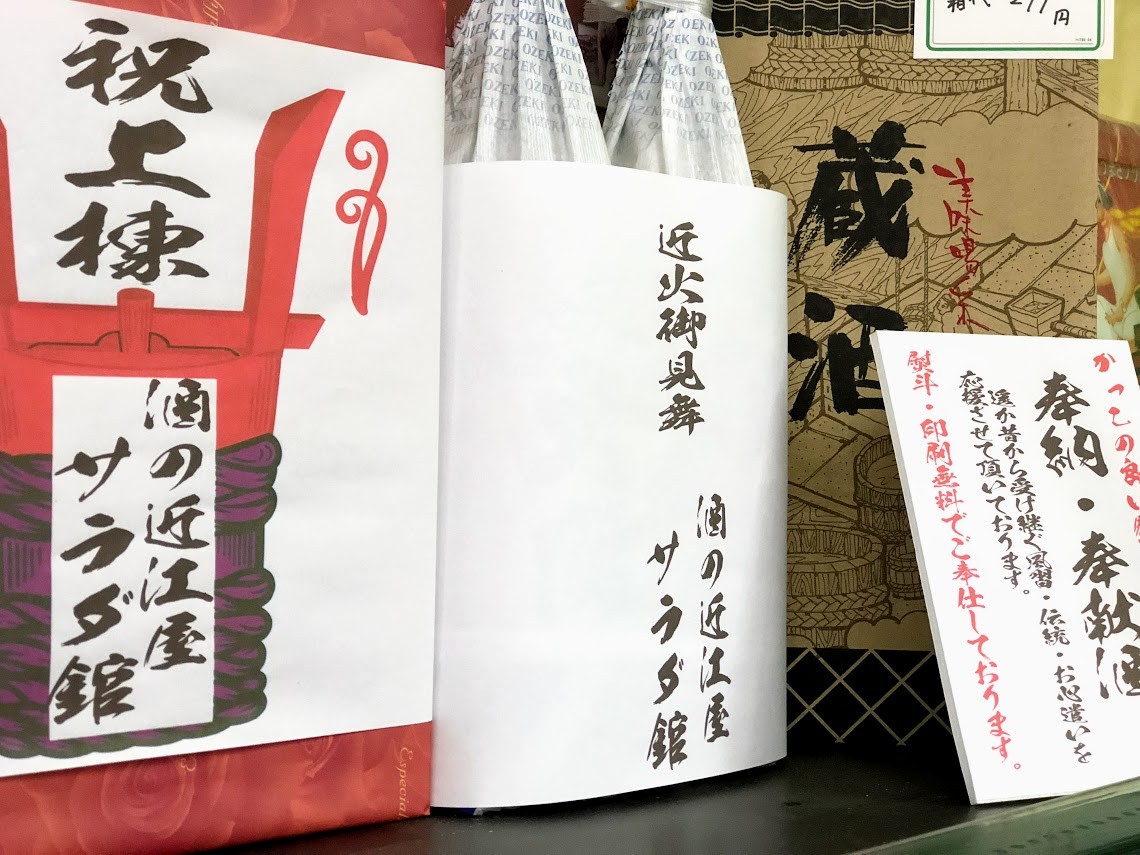 祝上棟
酒の近江屋
サラダ館
Especial
OZEKI OZEKI
近火御見舞
酒の近江屋
サラダ館
蔵酒
箱代 277円
奉納・奉献酒
遥か昔から受け継ぐ風習・伝統・お心遣いを
応援させて頂いております。
熨斗・印刷無料でご奉仕しております。